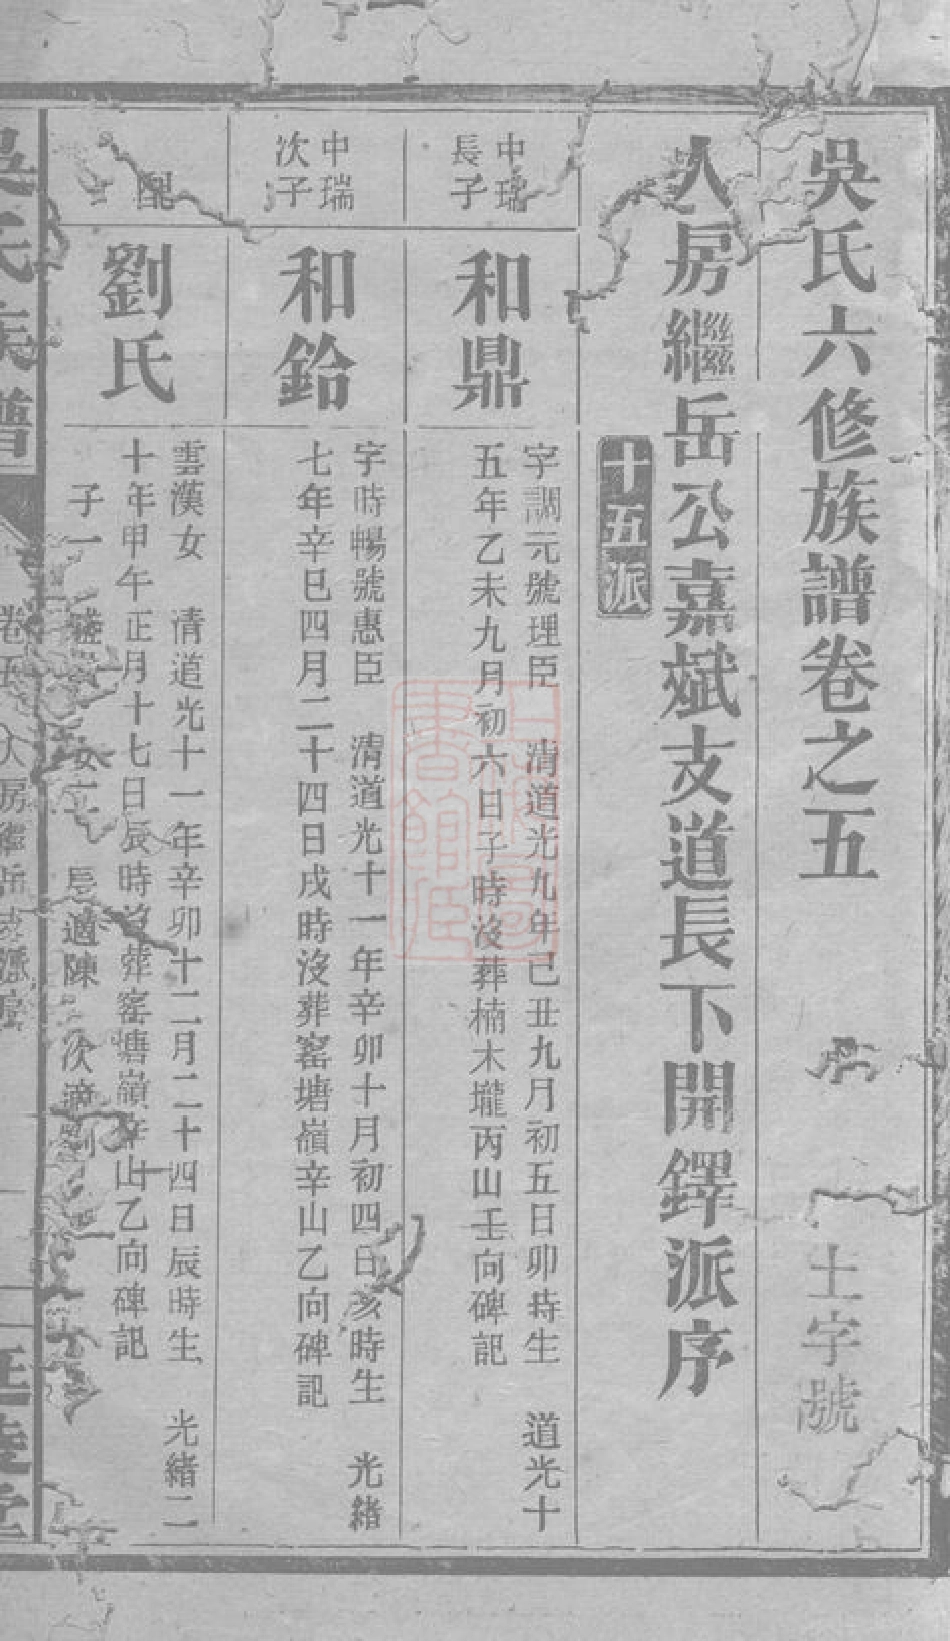 吳氏六修族譜卷之五
土字號
人房繼岳公嘉斌支道長下開鐸派序
十五派
中瑞
長子
和鼎
字調元號理臣 清道光九年己丑九月初五日卯時生 道光十
五年乙未九月初六日子時沒葬楠木壠丙山壬向碑記
中瑞
次子
和鈴
字時暢號惠臣 清道光十一年辛卯十月初四日亥時生 光緒
七年辛巳四月二十四日戌時沒葬窰塘嶺辛山乙向碑記
配
劉氏
雲漢女 清道光十一年辛卯十二月二十四日辰時生 光緒二
十年甲午正月十七日辰時沒葬窰塘嶺辛山乙向碑記
子一 女二 長適陳 次適劉
吳氏族譜
卷五 人房繼岳支派序